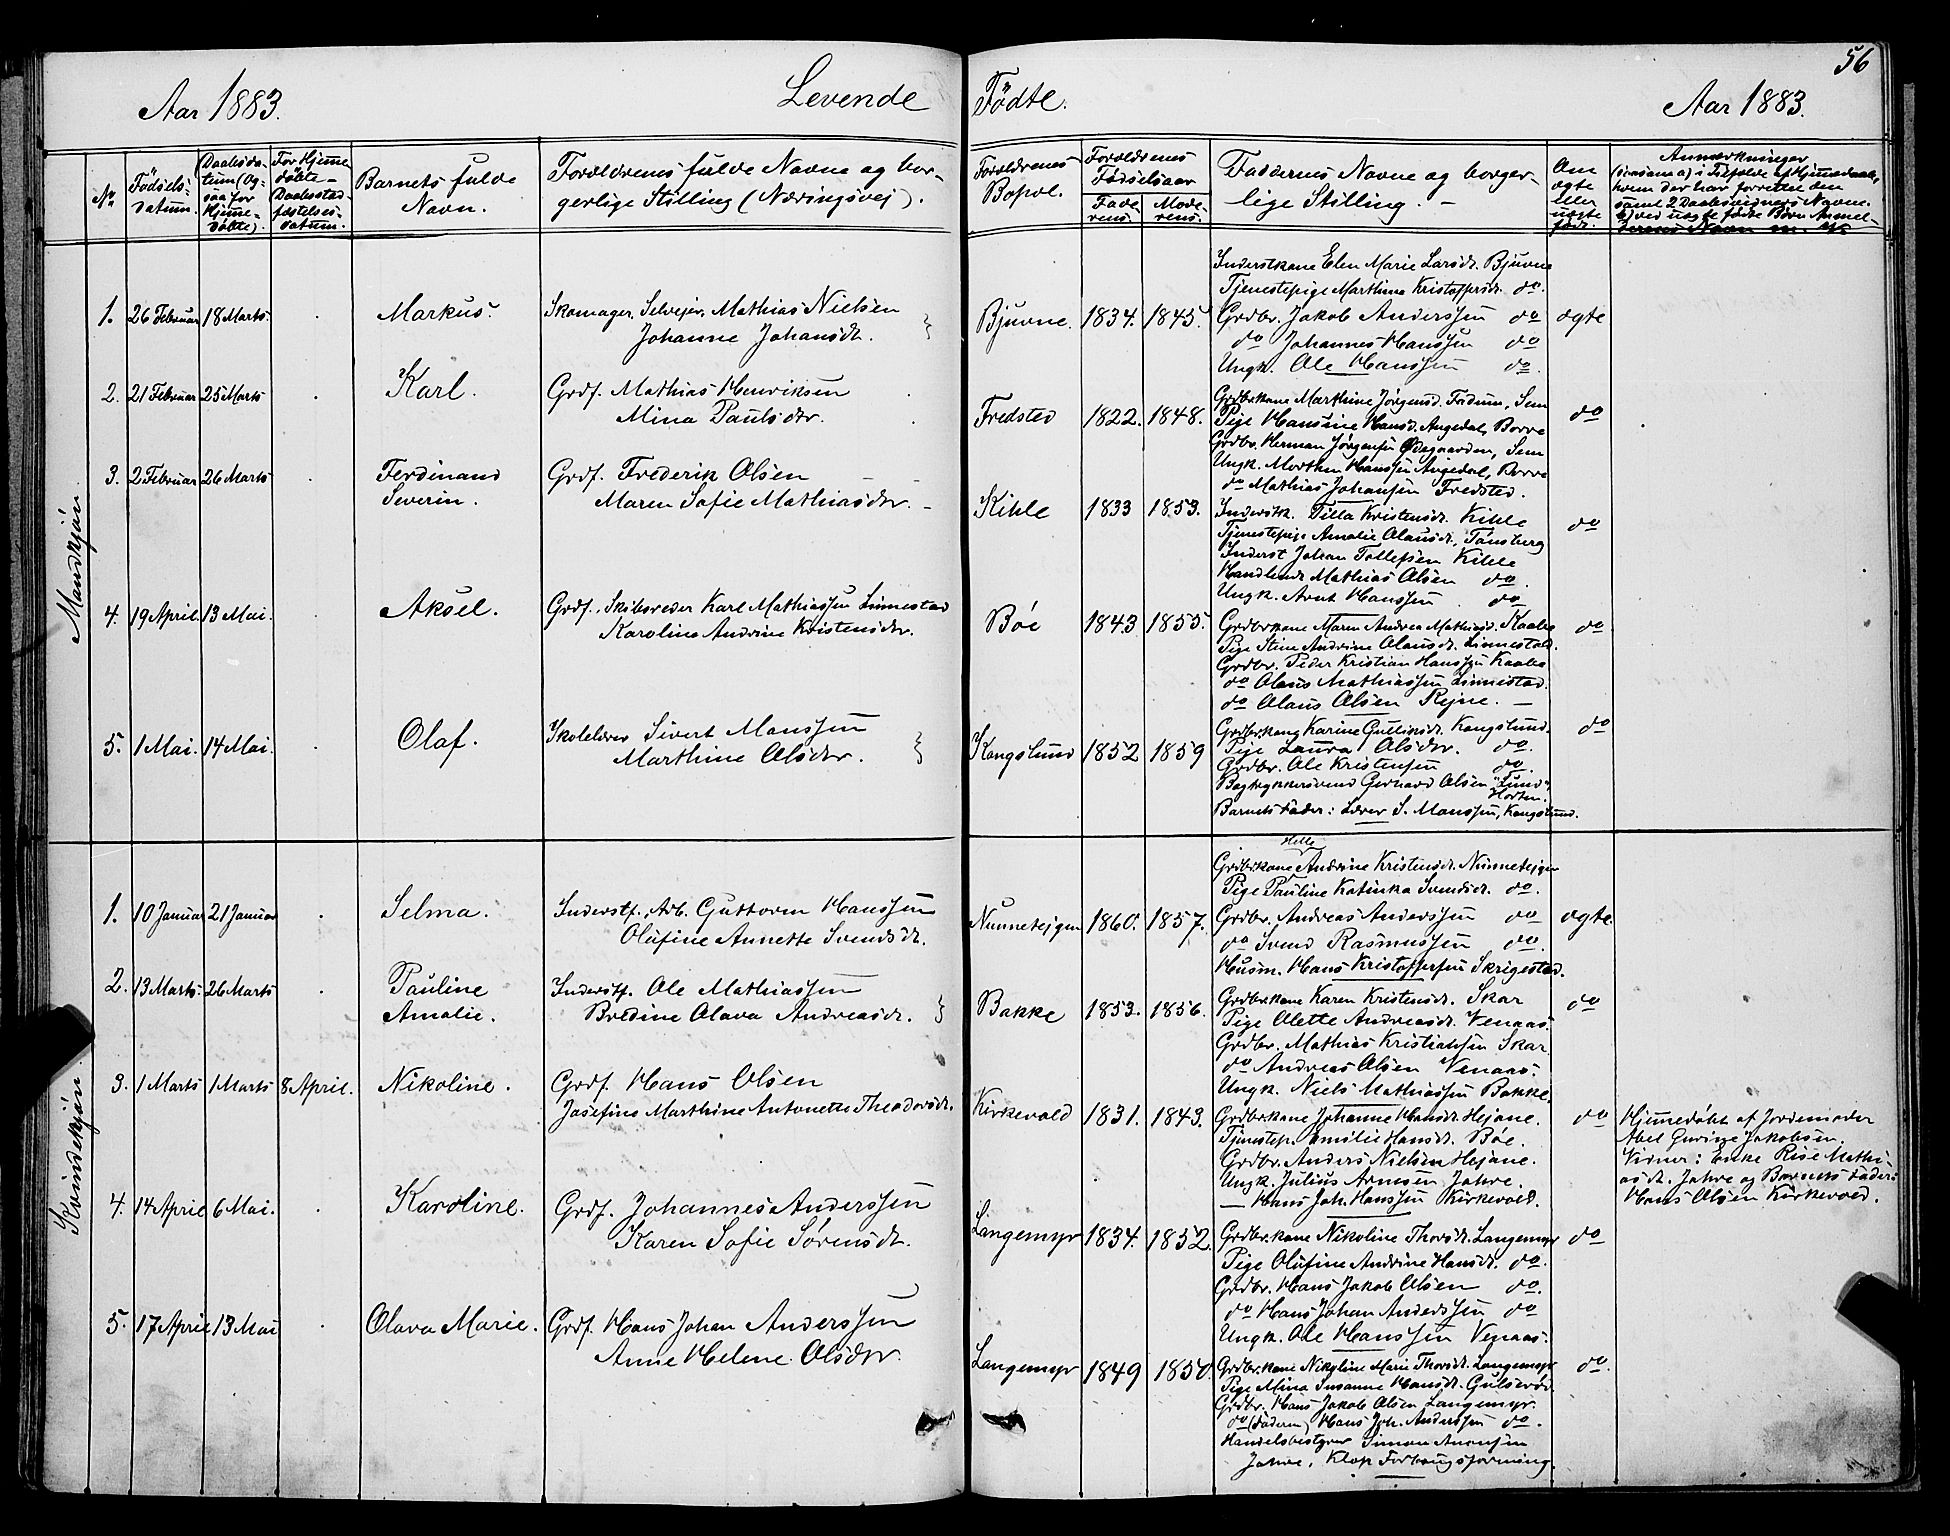 56
Aar 1883. Levende Fødte. Aar 1883.
No
Fødsels-
datum.
Daabsda-
tum (Og-
saa for
Hjemme-
døbte).
For Hjemme
døbte –
Daabsstad-
fæstelses-
datum.
Barnets fulde
Navn.
Forældrenes fulde Navne og bor-
gerlige Stilling (Næringsvej).
Forældrenes
Bopæl.
Forældrenes
Fødselsaar
Fade-
rens.
Mode-
rens.
Faddernes Navne og borger-
lige Stilling. –
Om
ægte
eller
uægte
født.
Anmærkninger
(saasom a) i Tilfælde af Hjemmedaab,
hvem der har forrettet den
samt 2 Daabsvidners Navne.
b) ved uægte fødte Børn Anmel-
derens Navn m. v.
Mandkjøn.
1. 26 Februar 18 Marts. Markus. Skomager, Selvejer, Mathias Nielsen
Johanne Johansdt.
Bjuvne. 1834. 1845. ægte
Inderstkone Elen Marie Larsdt. Bjuvne
Tjenestepige Marthine Kristoffersdt. do.
Grdbr. Jakob Anderssen do
do Johannes Hanssen do
Ungk. Ole Hanssen do.
2. 21 Februar 25 Marts Karl. Grdf. Mathias Henriksen
Mina Paulsdtr.
Fredsted 1822. 1848. do
Grdbrkone Marthine Jørgensd. Fadum, Sem
Pige Hansine Hansd. Angedal, Borre
Grdbr. Herman Jørgensen Ødegaarden, Sem
Ungk. Morthen Hanssen Angedal, Borre
do Mathias Johansen Fredsted.
3. 2 Februar 26 Marts Ferdinand
Severin.
Grdf. Frederik Olsen
Maren Sofie Mathiasdtr.
Kihle 1833 1853. do
Inderstk. Tilla Kristensdt. Kihle
Tjenestepige Amalie Olausdt., Tønsberg
Inderst Johan Tollefsen Kihle
Handlende Mathias Olsen do.
Ungk. Arnt Hanssen do
4. 19 April 13 Mai. Aksel. Grdf., Skibsreder Karl Mathiassen Linnestad
Karoline Andrine Kristensdtr.
Bøe 1843 1855. do
Grdbrkone Maren Andrea Mathiasdt. Kaabo
Pige Stine Andrine Olausdt. Linnestad.
Grdbr. Peder Kristian Hanssen Kaabo
do Olaus Mathiassen Linnestad.
do Olaus Olsen Rejne. –
5. 1 Mai. 14 Mai. Olaf. Skolelærer Sivert Monssen
Marthine Olsdtr.
Kongslund 1852 1859 do
Grdbrkone Karine Gulliksdt. Kongslund.
Pige Laura Olsdtr. do.
Grdbr. Ole Kristensen do.
Bogtrykkersvend Gerhard Olsen "Lund"
Horten.
Barnets Fader: Lærer S. Monssen, Kongslund.
Kvindekjøn.
1. 10 Januar 21 Januar Selma. Inderstf., Arb. Guttorm Hanssen
Olufine Annette Svendsdt.
Nunnetejgen 1860. 1857. ægte
Helle
Grdbrkone Andrine Kristensdt. Nunnetejgen
Pige Pauline Katinka Svendsdt. do.
Grdbr. Andreas Anderssen do
do Svend Rasmussen do.
Husm. Hans Kristoffersen Skrigestad.
2. 13 Marts. 26 Marts Pauline
Amalie.
Inderstf. Ole Mathiassen
Bredine Olava Andreasdt.
Bakke 1853. 1856. do
Grdbrkone Karen Kristensdt. Skar
Pige Olette Andreasdt. Venaas.
Grdbr. Mathias Kristiansen Skar
do Andreas Olsen Venaas.
Ungk. Niels Mathiassen Bakke.
3. 1 Marts 1 Marts 8 April. Nikoline. Grdf. Hans Olsen
Josefine Marthine Antonette Theodorsdt.
Kirkevold 1831. 1843. do
Grdbrkone Johanne Hansdt. Hejane.
Tjenestep. Emilie Hansdt. Bøe.
Grdbr. Anders Nielsen Hejane.
Ungk. Julius Arnesen Jahre.
– Hans Joh. Hanssen Kirkevold.
Hjemmedøbt af Jordemoder
Abel Gurine Jakobsen.
Vidner: Enke Rise Mathi-
asdt. Jahre og Barnets Fader:
Hans Olsen Kirkevold.
4. 14 April 6 Mai. Karoline. Grdf. Johannes Anderssen
Karen Sofie Sørensdt.
Langemyr 1834. 1852. do
Grdbrkone Nikoline Thorsdt. Langemyr
Pige Olufine Andrine Hansdt. do.
Grdbr. Hans Jakob Olsen do.
do Hans Johan Anderssen do
Ungk. Ole Hanssen Venaas.
5. 17 April 13 Mai Olava Marie. Grdf. Hans Johan Anderssen
Anne Helene Olsdtr.
Langemyr 1849 1850. do.
Grdbrkone Nikoline Marie Thorsdt. Langemyr
Pige Mina Susanne Hansdt. Gulserød.
Grdbr. Hans Jakob Olsen Langemyr.
do (Faderen) Hans Joh. Anderssen do.
Handelsbestyrer Simon Anonsen
Jahre, Klop Forbrugsforening.